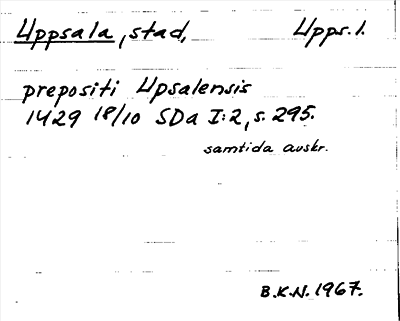 Uppsala, stad, Upps. l.
prepositi Upsalensis
1429 18/10 SDa I:2, s. 295.
samtida avskr.
B.K.N. 1967.